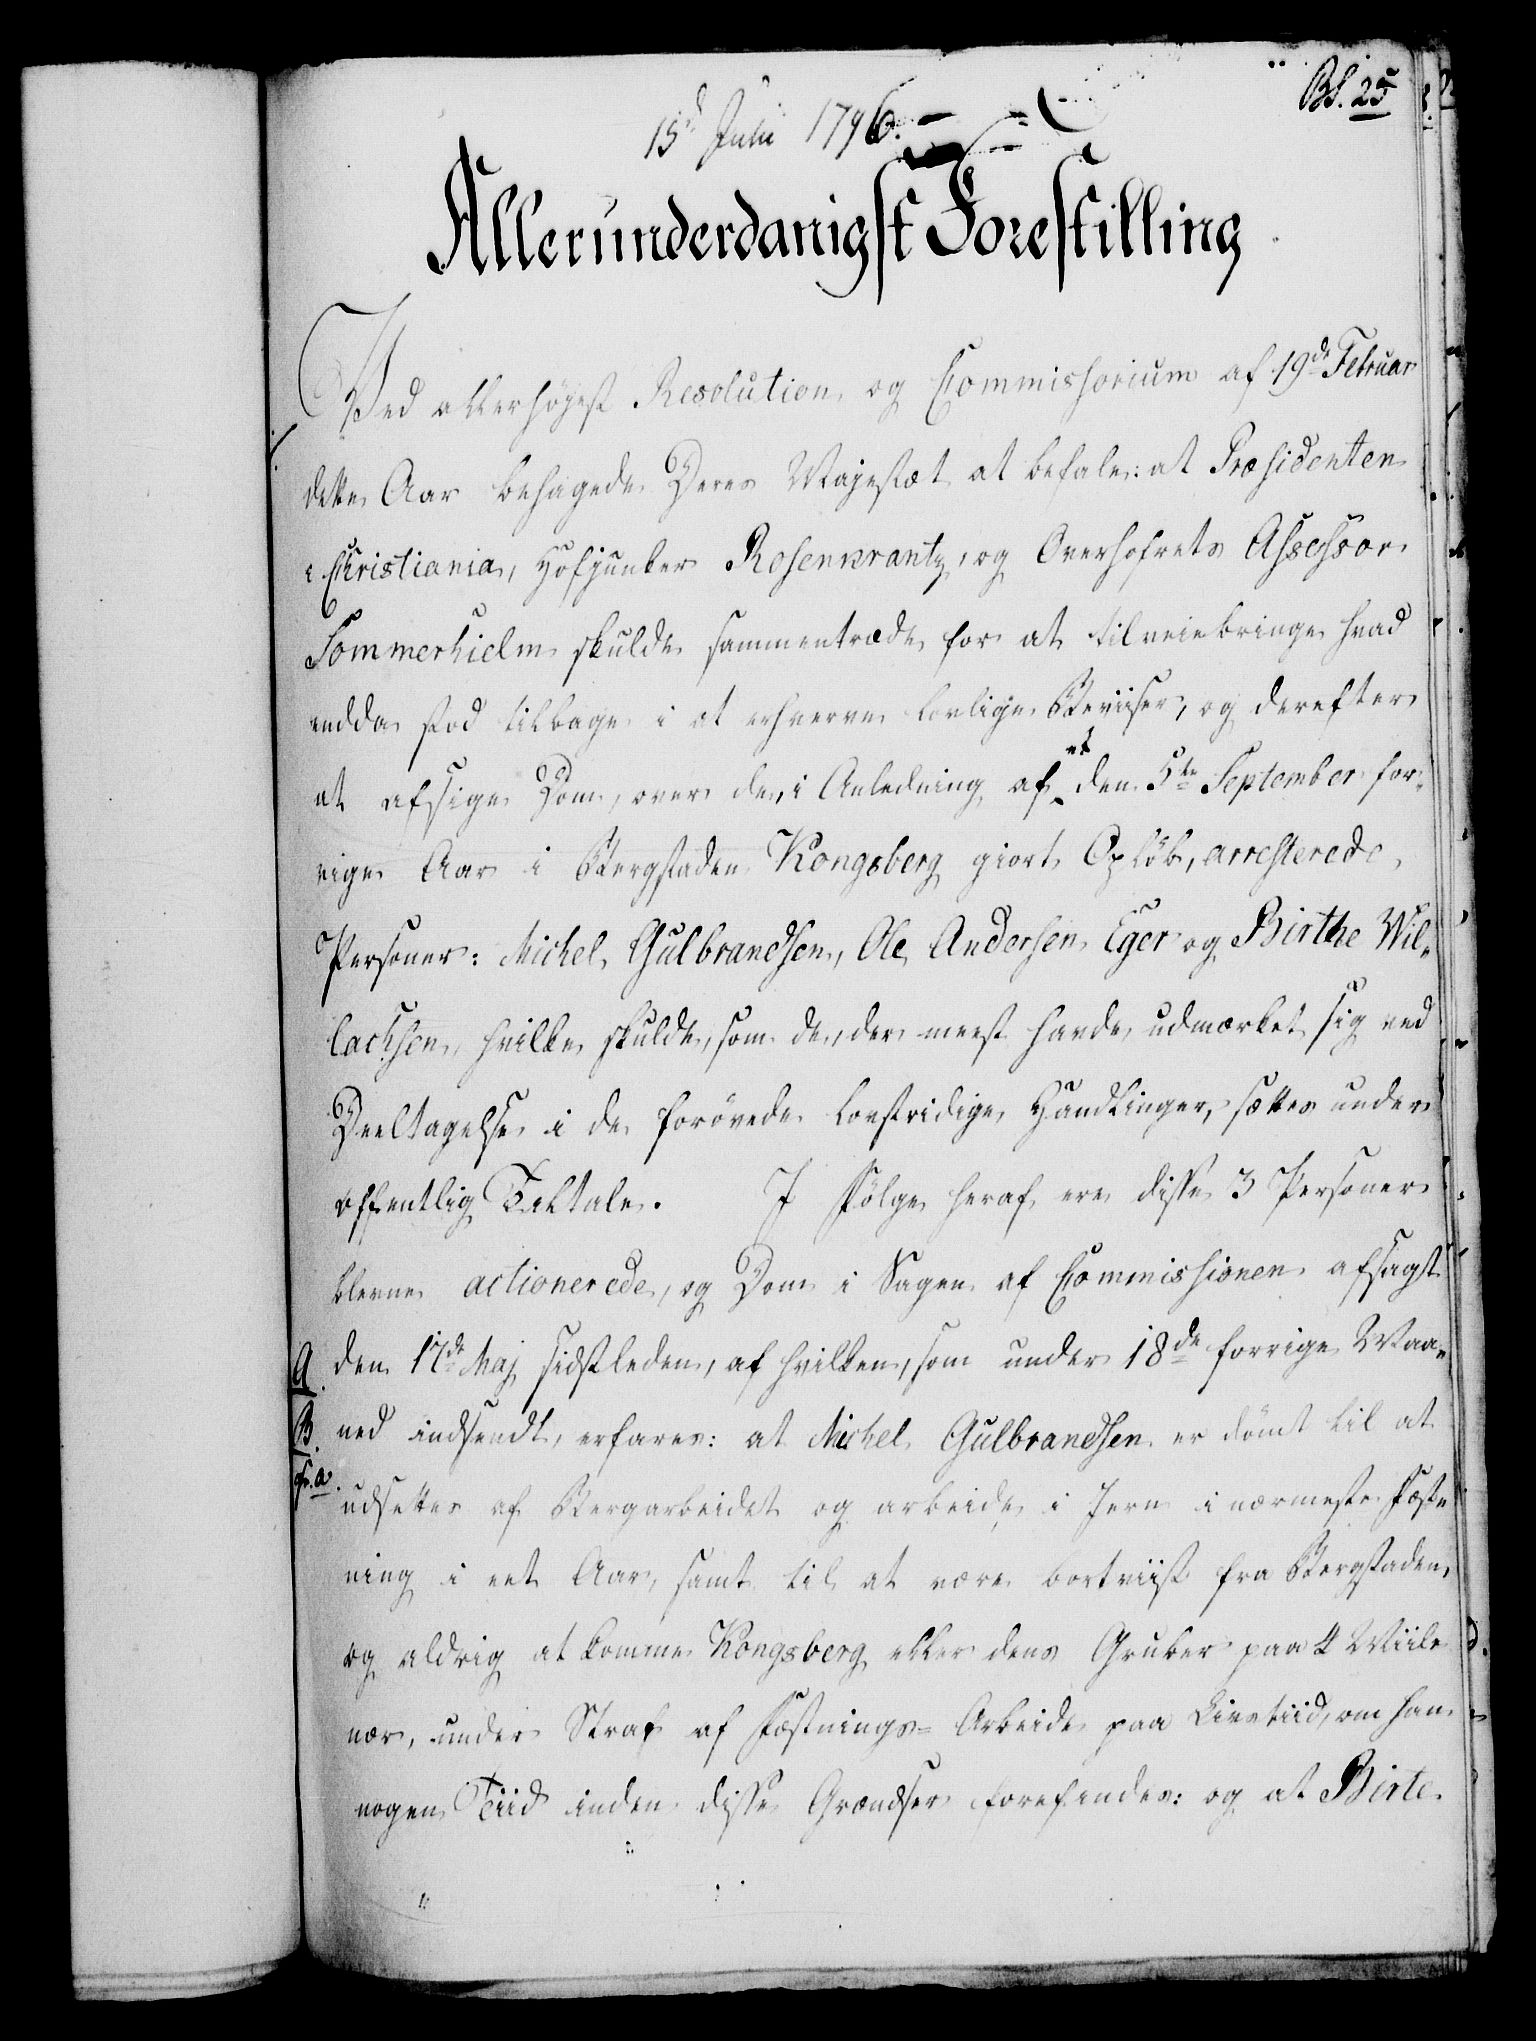 Bl. 25
15d Julii 1796.
Allerunderdanigst Forestilling
Ved allerhøjest Resolution og Commissorium af 19de Februar
dette Aar behagede Deres Majestæt at befale: at Præsidenten
i Christiania, Hofjunker Rosenkrantz, og Overhofrets Assessor
Sommerhielm skulde sammentræde for at tilveiebringe hvad
endda stod tilbage i at erhverve lovlige Beviiser, og derefter
at afsige Dom, over de, i Anledning af et den 5te September for-
rige Aar i Bergstaden Kongsberg giort Opløb, arresterede
Personer: Michel Gulbrandsen, Ole Andersen Eger og Birthe Wil-
lachsen, hvilke skulde, som de, der meest havde udmærket sig ved
Deeltagelse i de forøvede lovstridige Handlinger, sættes under
offentlig Tiltale. I Følge heraf ere disse 3 Personer
blevne actionerede, og Dom i Sagen af Commissionen afsagt
A. den 17de Maj sidstleden, af hvilken, som under 18de forrige Maa-
B. ned indsendt, erfares: at Michel Gulbrandsen er dømt til at
cfr. a. udsættes af Bergarbeidet og arbeide i Jern i nærmeste Fæst-
ning i eet Aar, samt til at være bortviist fra Bergstaden,
og aldrig at komme Kongsberg eller dens Gruber paa 4 Miile
nær, under Straf af Fæstnings-Arbeide paa Livstiid, om han
nogen Tiid inden disse Grændser forefindes: og at Birte